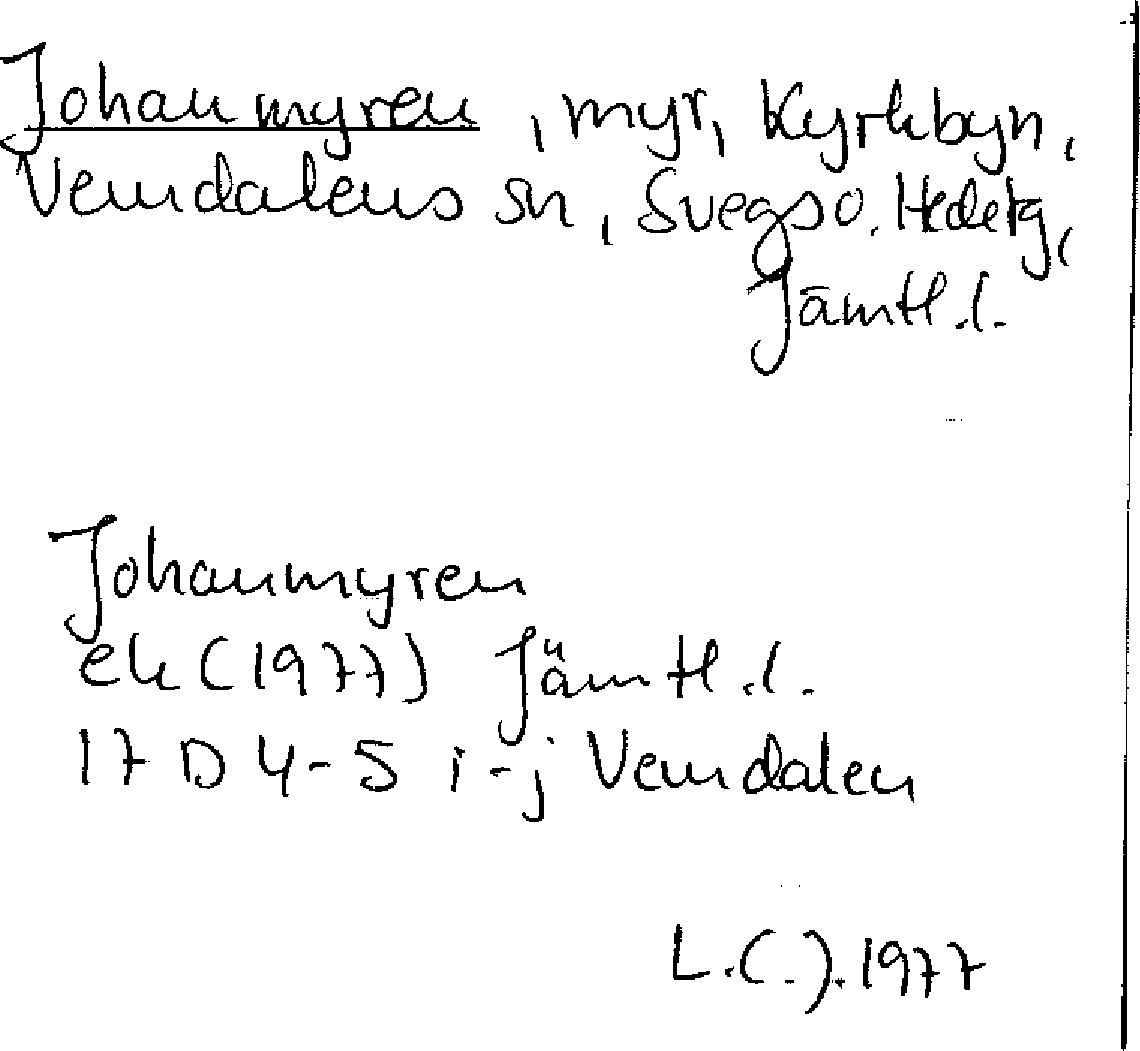 Johanmyren, myr, Kyrkbyn,
Vemdalens sn, Svegs o. Hedetg,
Jämtl. l.
Johanmyren
ek (1977) Jämtl. l.
17 D 4-5 i-j Vemdalen
L.C.J. 1977